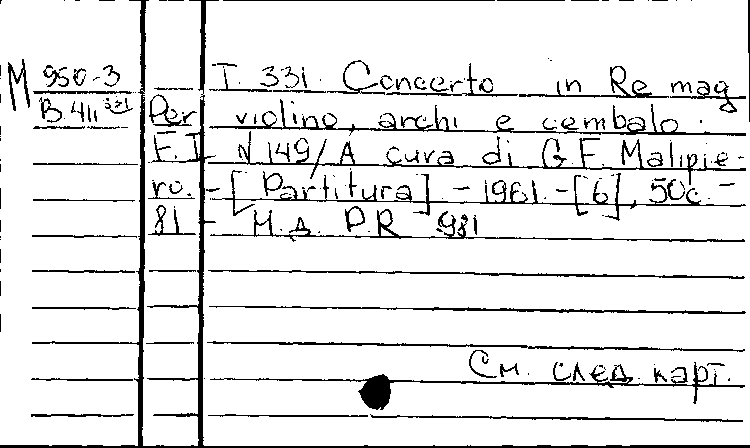 M 950-3
B.411 331
T. 331. Concerto in Re mag
Per violino, archi e cembalo.
F.I N 149/A cura di G F. Malipie-
ro. - [Partitura] - 1961. - [6], 50c. -
81 - М.д. P.R 981
См. след. карт.